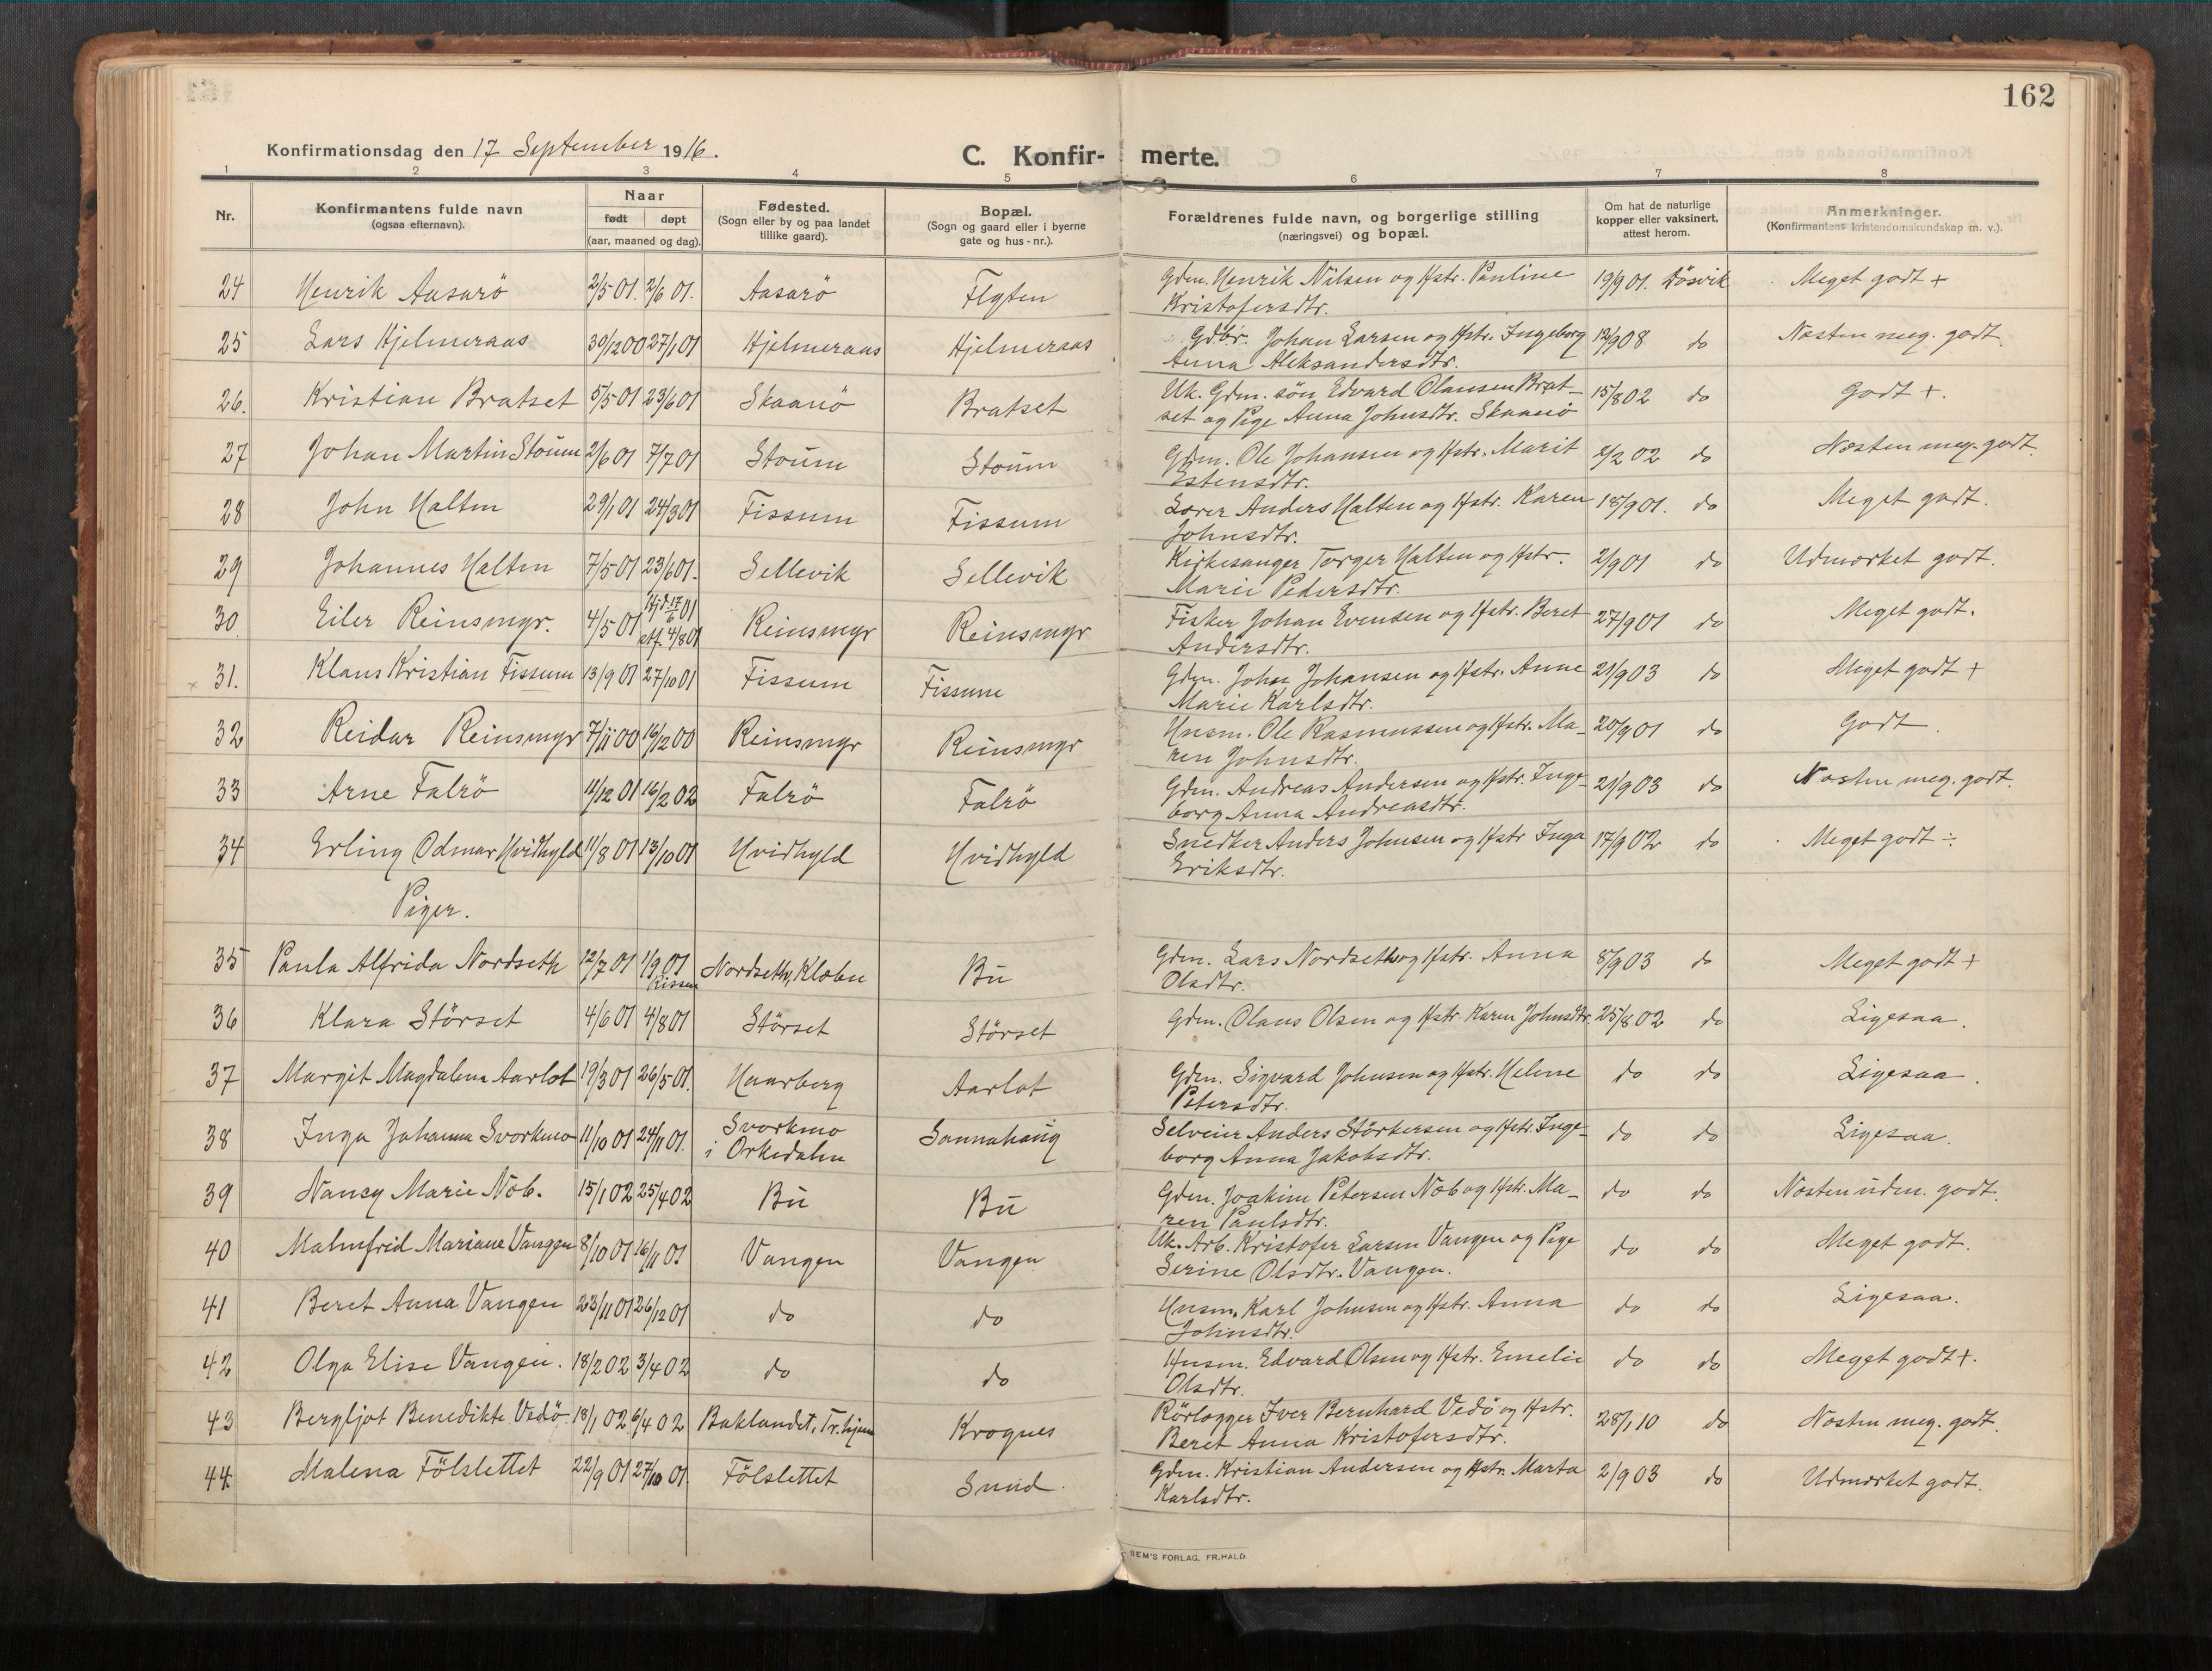 162
Konfirmationsdag den 17 September 1916.
C. Konfir- merte.
1 2 3 4 5 6 7 8
Nr.
Konfirmantens fulde navn
(ogsaa efternavn).
Naar
født døpt
(aar, maaned og dag).
Fødested.
(Sogn eller by og paa landet
tillike gaard).
Bopæl.
(Sogn og gaard eller i byerne
gate og hus-nr.).
Forældrenes fulde navn, og borgerlige stilling
(næringsvei) og bopæl.
Om hat de naturlige
kopper eller vaksinert,
attest herom.
Anmerkninger.
(Konfirmantens kristendomskundskap m. v.).
24 Henrik Aasarö 2/5 01. 2/6 01. Aasarö Flyten Gdm. Henrik Nilsen og Hstr. Pauline 19/9 01. Dösvik Meget godt +
Kristofersdtr.
25 Lars Hjelmeraas 30/12 00 27/1 01 Hjelmeraas Hjelmeraas Gdbr. Johan Larsen og Hstr. Ingeborg 12/9 08 do Næsten meg. godt.
Anna Aleksandersdtr.
26. Kristian Bratset 5/5 01 23/6 01 Skaanö Bratset Uk. Gdm. søn Edvard Olausen Brat- 15/8 02 do Godt +.
set og Pige Anna Johnsdtr. Skaanö
27 Johan Martin Stoum 2/6 01 7/7 01 Stoum Stoum Gdm. Ole Johansen og Hstr. Marit 2/2 02 do Næsten meg. godt.
Estensdtr.
28 John Halten 29/1 01 24/3 01 Fissum Fissum Lærer Anders Halten og Hstr. Karen 18/9 01. do Meget godt.
Johnsdtr.
29 Johannes Halten 7/5 01 23/6 01. Sellevik Sellevik Kirkesanger Torger Halten og Hstr. 2/9 01 do Udmærket godt.
Marie Pedersdtr.
30. Eiler Reinsmyr. 4/5 01 Hj.d. 17/6 01 Reinsmyr Reinsmyr Fisker Johan Evensen og Hstr. Beret 27/9 01 do Meget godt.
stf. 4/8 01 Andersdtr.
31. Klaus Kristian Fissum 13/9 01 27/10 01 Fissum Fissum Gdm. Johan Johansen og Hstr. Anne 21/9 03 do Meget godt +
Marie Karlsdtr.
32 Reidar Reinsmyr 7/11 00 16/12 00 Reinsmyr Reinsmyr Husm. Ole Rasmussen og Hstr. Ma- 20/9 01 do Godt.
ren Johnsdtr.
33 Arne Falrö 11/12 01 16/2 02 Falrö Falrö Gdm. Andreas Andersen og Hstr. Inge- 21/9 03 do Næsten meg. godt.
borg Anna Andreasdtr.
34 Erling Odmar Hvidhyld 11/8 01 13/10 01 Hvidhyld Hvidhyld Snedker Anders Johnsen og Hstr Inga 17/9 02 do Meget godt ÷
Eriksdtr.
Piger.
35 Paula Alfrida Nordseth 12/7 01 1/9 01 Nordseth, Klæbu Bu Gdm. Lars Nordseth og Hstr. Anna 8/9 03 do Meget godt +
Rissen Olsdtr.
36 Klara Störset 4/6 01 4/8 01 Störset Störset Gdm. Olaus Olsen og Hstr. Karen Johnsdtr. 25/8 02 do Ligesaa.
37 Margit Magdalena Aarlot 19/3 01 26/5 01. Haarberg Aarlot Gdm. Sigvard Johnsen og Hstr. Helene do do Ligesaa.
Petersdtr.
38 Inga Johanna Svorkmo 11/10 01 24/11 01. Svorkmo Sannahaug Selveier Anders Störkersen og Hstr. Inge- do do Ligesaa.
i Orkedalen borg Anna Jakobsdtr.
39 Nancy Marie Næb. 15/1 02 25/4 02 Bu Bu Gdm. Joakim Petersen Næb og Hstr. Ma- do do Næsten udm. godt.
ren Paulsdtr.
40 Malmfrid Mariane Vangen 8/10 01 16/11 01 Vangen Vangen Uk. Arb. Kristofer Larsen Vangen og Pige do do Meget godt.
Serine Olsdtr. Vangen.
41 Beret Anna Vangen 23/11 01 26/12 01 do do Husm. Karl Johnsen og Hstr. Anna do do Ligesaa.
Johnsdtr.
42 Olga Elise Vangen. 18/2 02 3/4 02 do do Husm. Edvard Olsen og Hstr. Emelie do do Meget godt +.
Olsdtr.
43 Bergljot Benedikte Vedö 18/1 02 6/4 02 Baklandet, Tr.hjem Krognes Rörlægger Iver Bernhard Vedö og Hstr. 28/1 10 do Næsten meg. godt.
Beret Anna Kristofersdtr.
44 Malena Fölslettet 22/9 01 27/10 01. Fölslettet Sund. Gdm. Kristian Andersen og Hstr. Marta 2/9 03 do Udmærket godt.
Karlsdtr.
SEM'S FORLAG, FR.HALD.